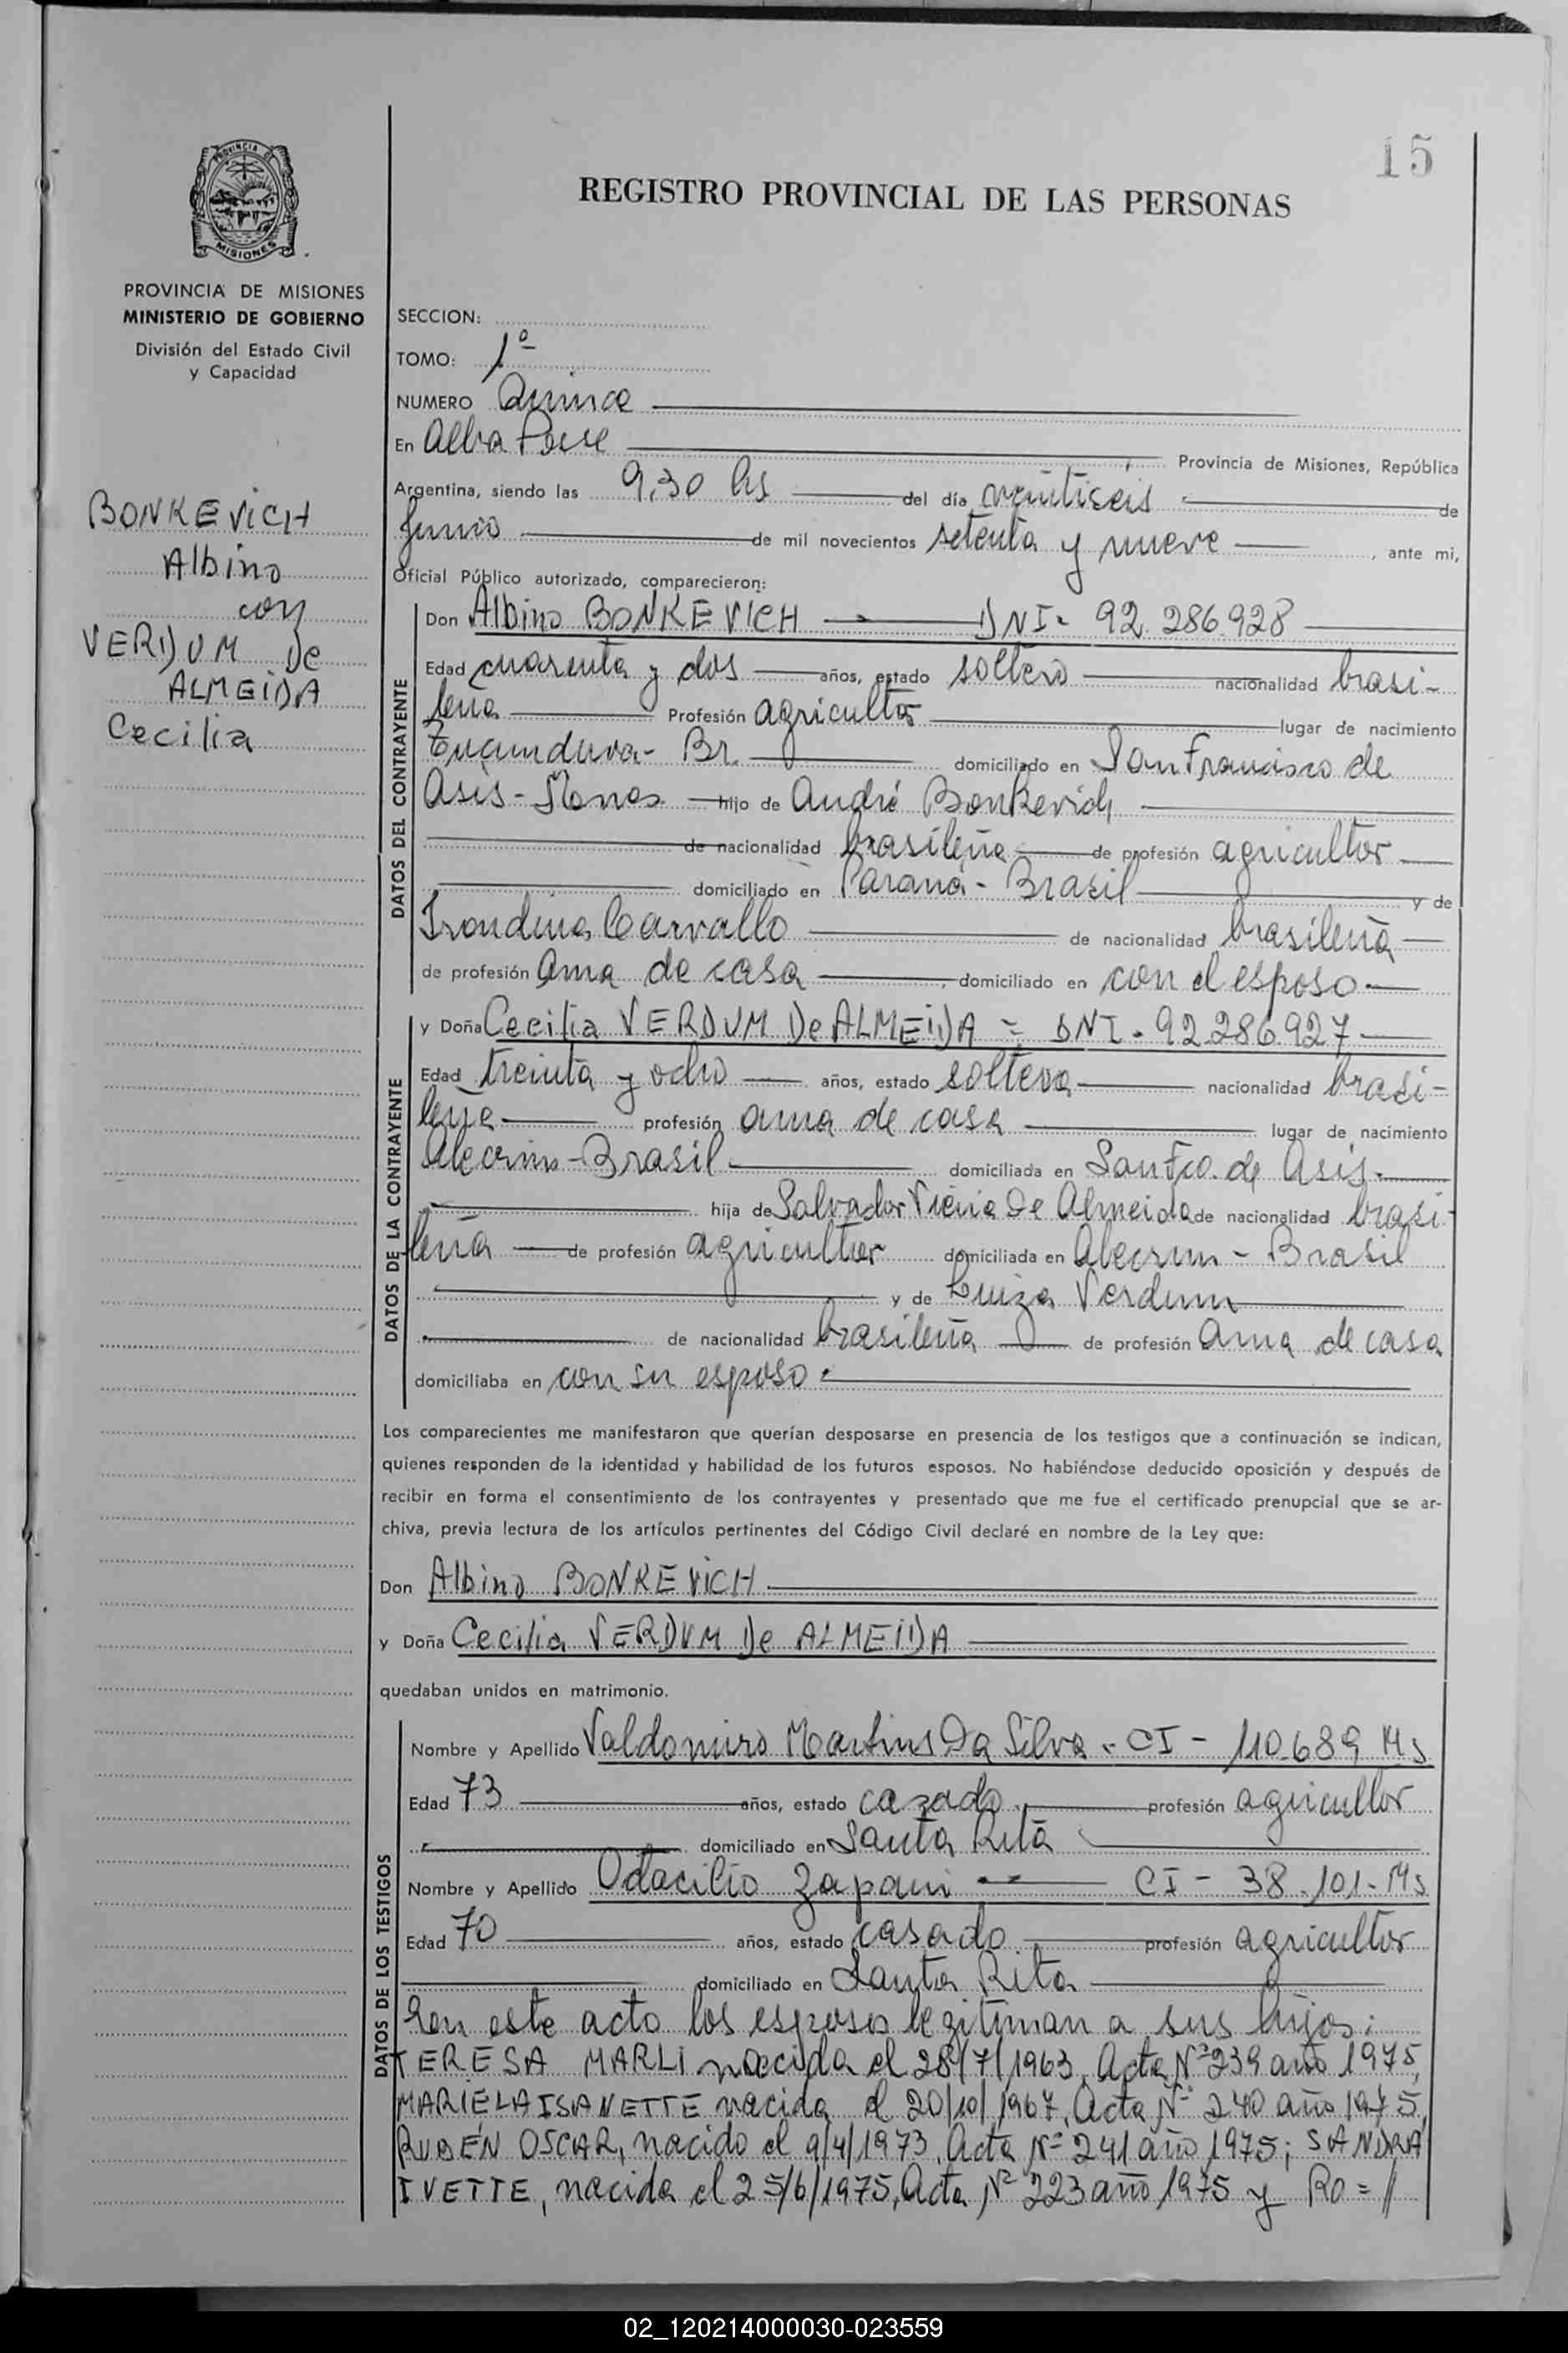 15
REGISTRO PROVINCIAL DE LAS PERSONAS
PROVINCIA DE MISIONES
PROVINCIA DE MISIONES
MINISTERIO DE GOBIERNO
División del Estado Civil
y Capacidad
BONKEVICH
Albino
con
VERDUM De
ALMEIDA
Cecilia
SECCION:
TOMO: 1º
NUMERO Quince
En Alba Posse Provincia de Misiones, República
Argentina, siendo las 9,30 hs del día veintiseis de
Junio de mil novecientos setenta y nueve, ante mi,
Oficial Público autorizado, comparecieron:
DATOS DEL CONTRAYENTE
Don Albino BONKEVICH DNI- 92.286.928
Edad cuarenta y dos años, estado soltero nacionalidad brasi-
leña Profesión agricultor lugar de nacimiento
Tucunduva- Br. domiciliado en San Francisco de
Asis - Mnes hijo de André Bonkevich
de nacionalidad brasileña de profesión agricultor
domiciliado en Paraná - Brasil y de
Irondina Carvallo de nacionalidad brasileña
de profesión ama de casa domiciliado en con el esposo
DATOS DE LA CONTRAYENTE
y Doña Cecilia VERDUM De ALMEIDA = DNI. 92.286.927
Edad treinta y ocho años, estado soltera nacionalidad brasi-
leña profesión ama de casa lugar de nacimiento
Alecrim - Brasil domiciliada en San Fco. de Asis.
hija de Salvador Vieira De Almeida de nacionalidad brasi-
leña de profesión agricultor domiciliada en Alecrim - Brasil
y de Luiza Verdum
de nacionalidad brasileña de profesión ama de casa
domiciliaba en con su esposo.
Los comparecientes me manifestaron que querían desposarse en presencia de los testigos que a continuación se indican,
quienes responden de la identidad y habilidad de los futuros esposos. No habiéndose deducido oposición y después de
recibir en forma el consentimiento de los contrayentes y presentado que me fue el certificado prenupcial que se ar-
chiva, previa lectura de los artículos pertinentes del Código Civil declaré en nombre de la Ley que:
Don Albino BONKEVICH
y Doña Cecilia VERDUM De ALMEIDA
quedaban unidos en matrimonio.
DATOS DE LOS TESTIGOS
Nombre y Apellido Valdomiro Martins Da Silva - CI - 110.689 Ms
Edad 73 años, estado casado profesión agricultor
domiciliado en Santa Rita
Nombre y Apellido Odacilio Zapani CI - 38.101- Ms
Edad 70 años, estado casado profesión agricultor
domiciliado en Santa Rita
En este acto los esposos legitiman a sus hijos:
TERESA MARLI nacida el 28/7/1963, Acta Nº 239 año 1975,
MARIELA ISANETTE nacida el 20/10/1967, Acta Nº 240 año 1975,
RUBÉN OSCAR, nacido el 9/4/1973, Acta Nº 241 año 1975; SANDRA
IVETTE, nacida el 25/6/1975, Acta Nº 223 año 1975 y Ro = //
02_120214000030-023559